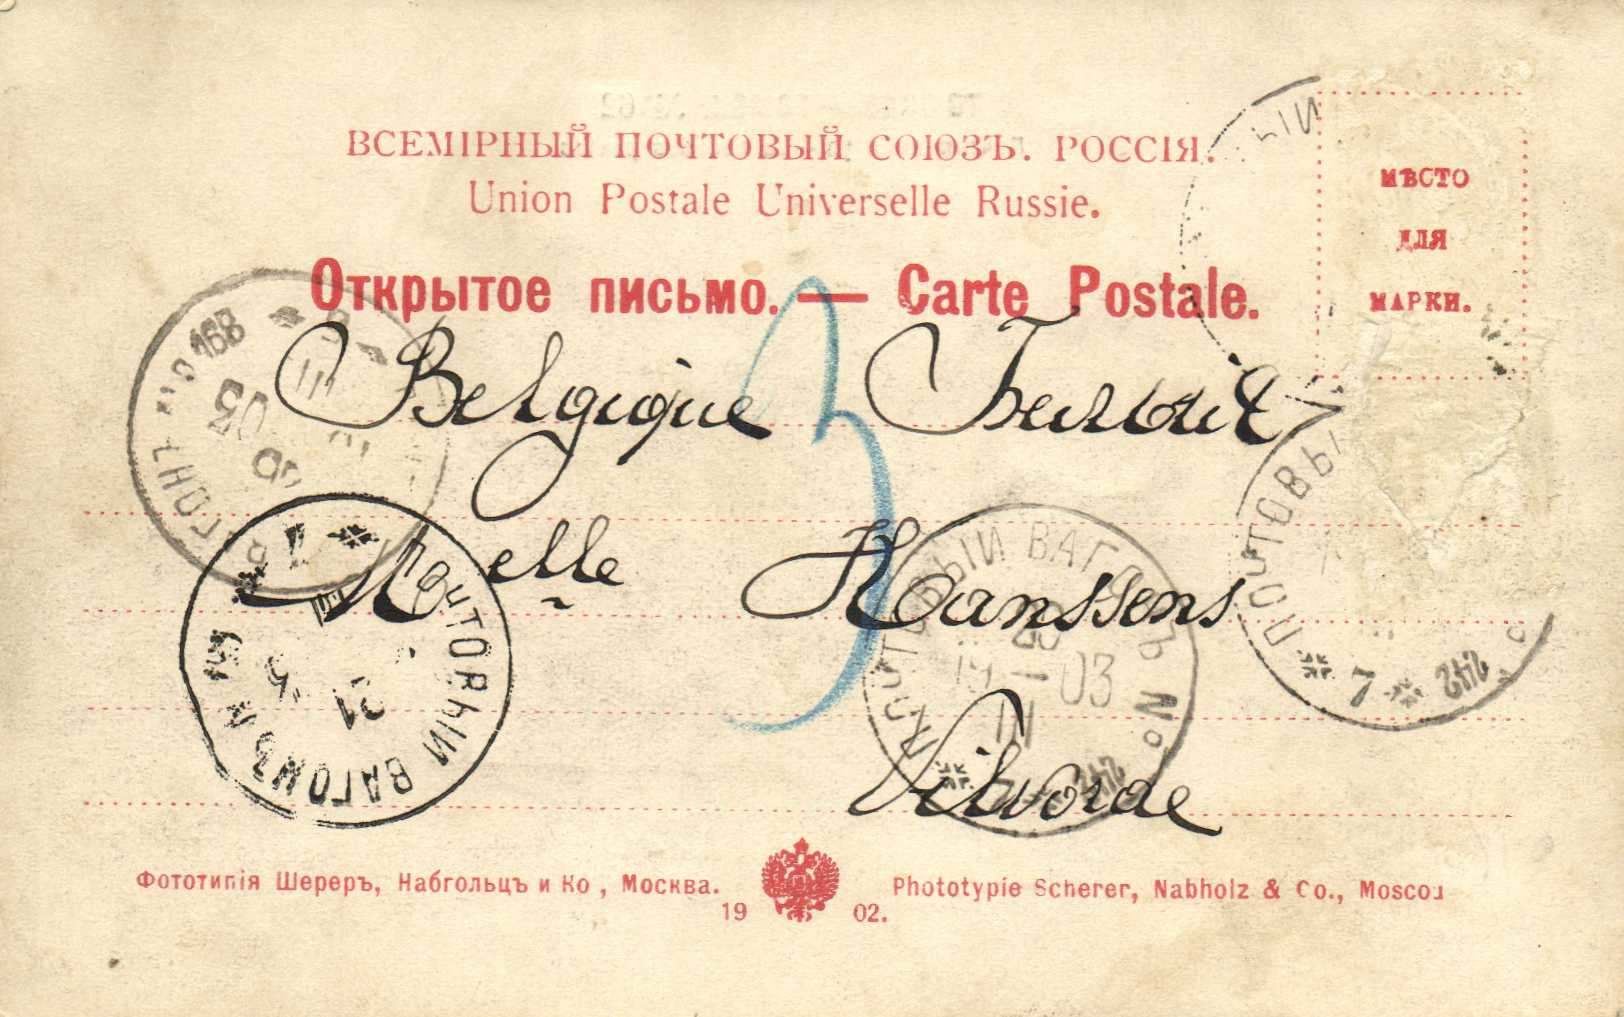 ВСЕМІРНЫЙ ПОЧТОВЫЙ СОЮЗЪ. РОССІЯ.
Union Postale Universelle Russie.
МѢСТО
ДЛЯ
МАРКИ.
Открытое письмо. — Carte Postale.
Belgique Бельгія
3
Melle Hanssens
Vilvorde
168
03
ПОЧТОВЫЙ ВАГОНЪ №
7
21
ПОЧТОВЫЙ ВАГОНЪ №
19 — 03
III
242
ПОЧТОВЫ
7 242
Фототипія Шереръ, Набгольцъ и Ко, Москва.
19 02.
Phototypie Scherer, Nabholz & Co., Moscou